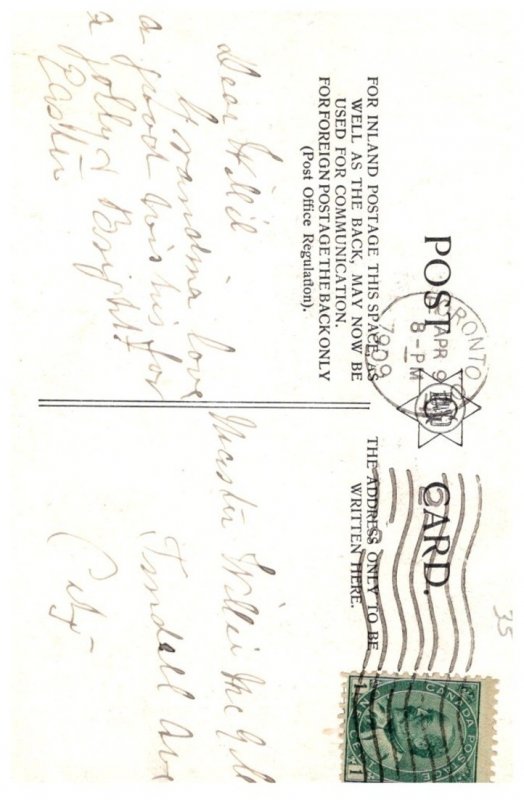 POST CARD.
FOR INLAND POSTAGE THIS SPACE, AS
WELL AS THE BACK, MAY NOW BE
USED FOR COMMUNICATION.
FOR FOREIGN POSTAGE THE BACK ONLY
(Post Office Regulation).
THE ADDRESS ONLY TO BE
WRITTEN HERE.
TORONTO
APR 9
8-PM
1909
35
CANADA POSTAGE
1 1
Dear
Grandma love
a good wishes for
a Jolly & Bright
Easter
Master Willie
Tyndall Ave
City